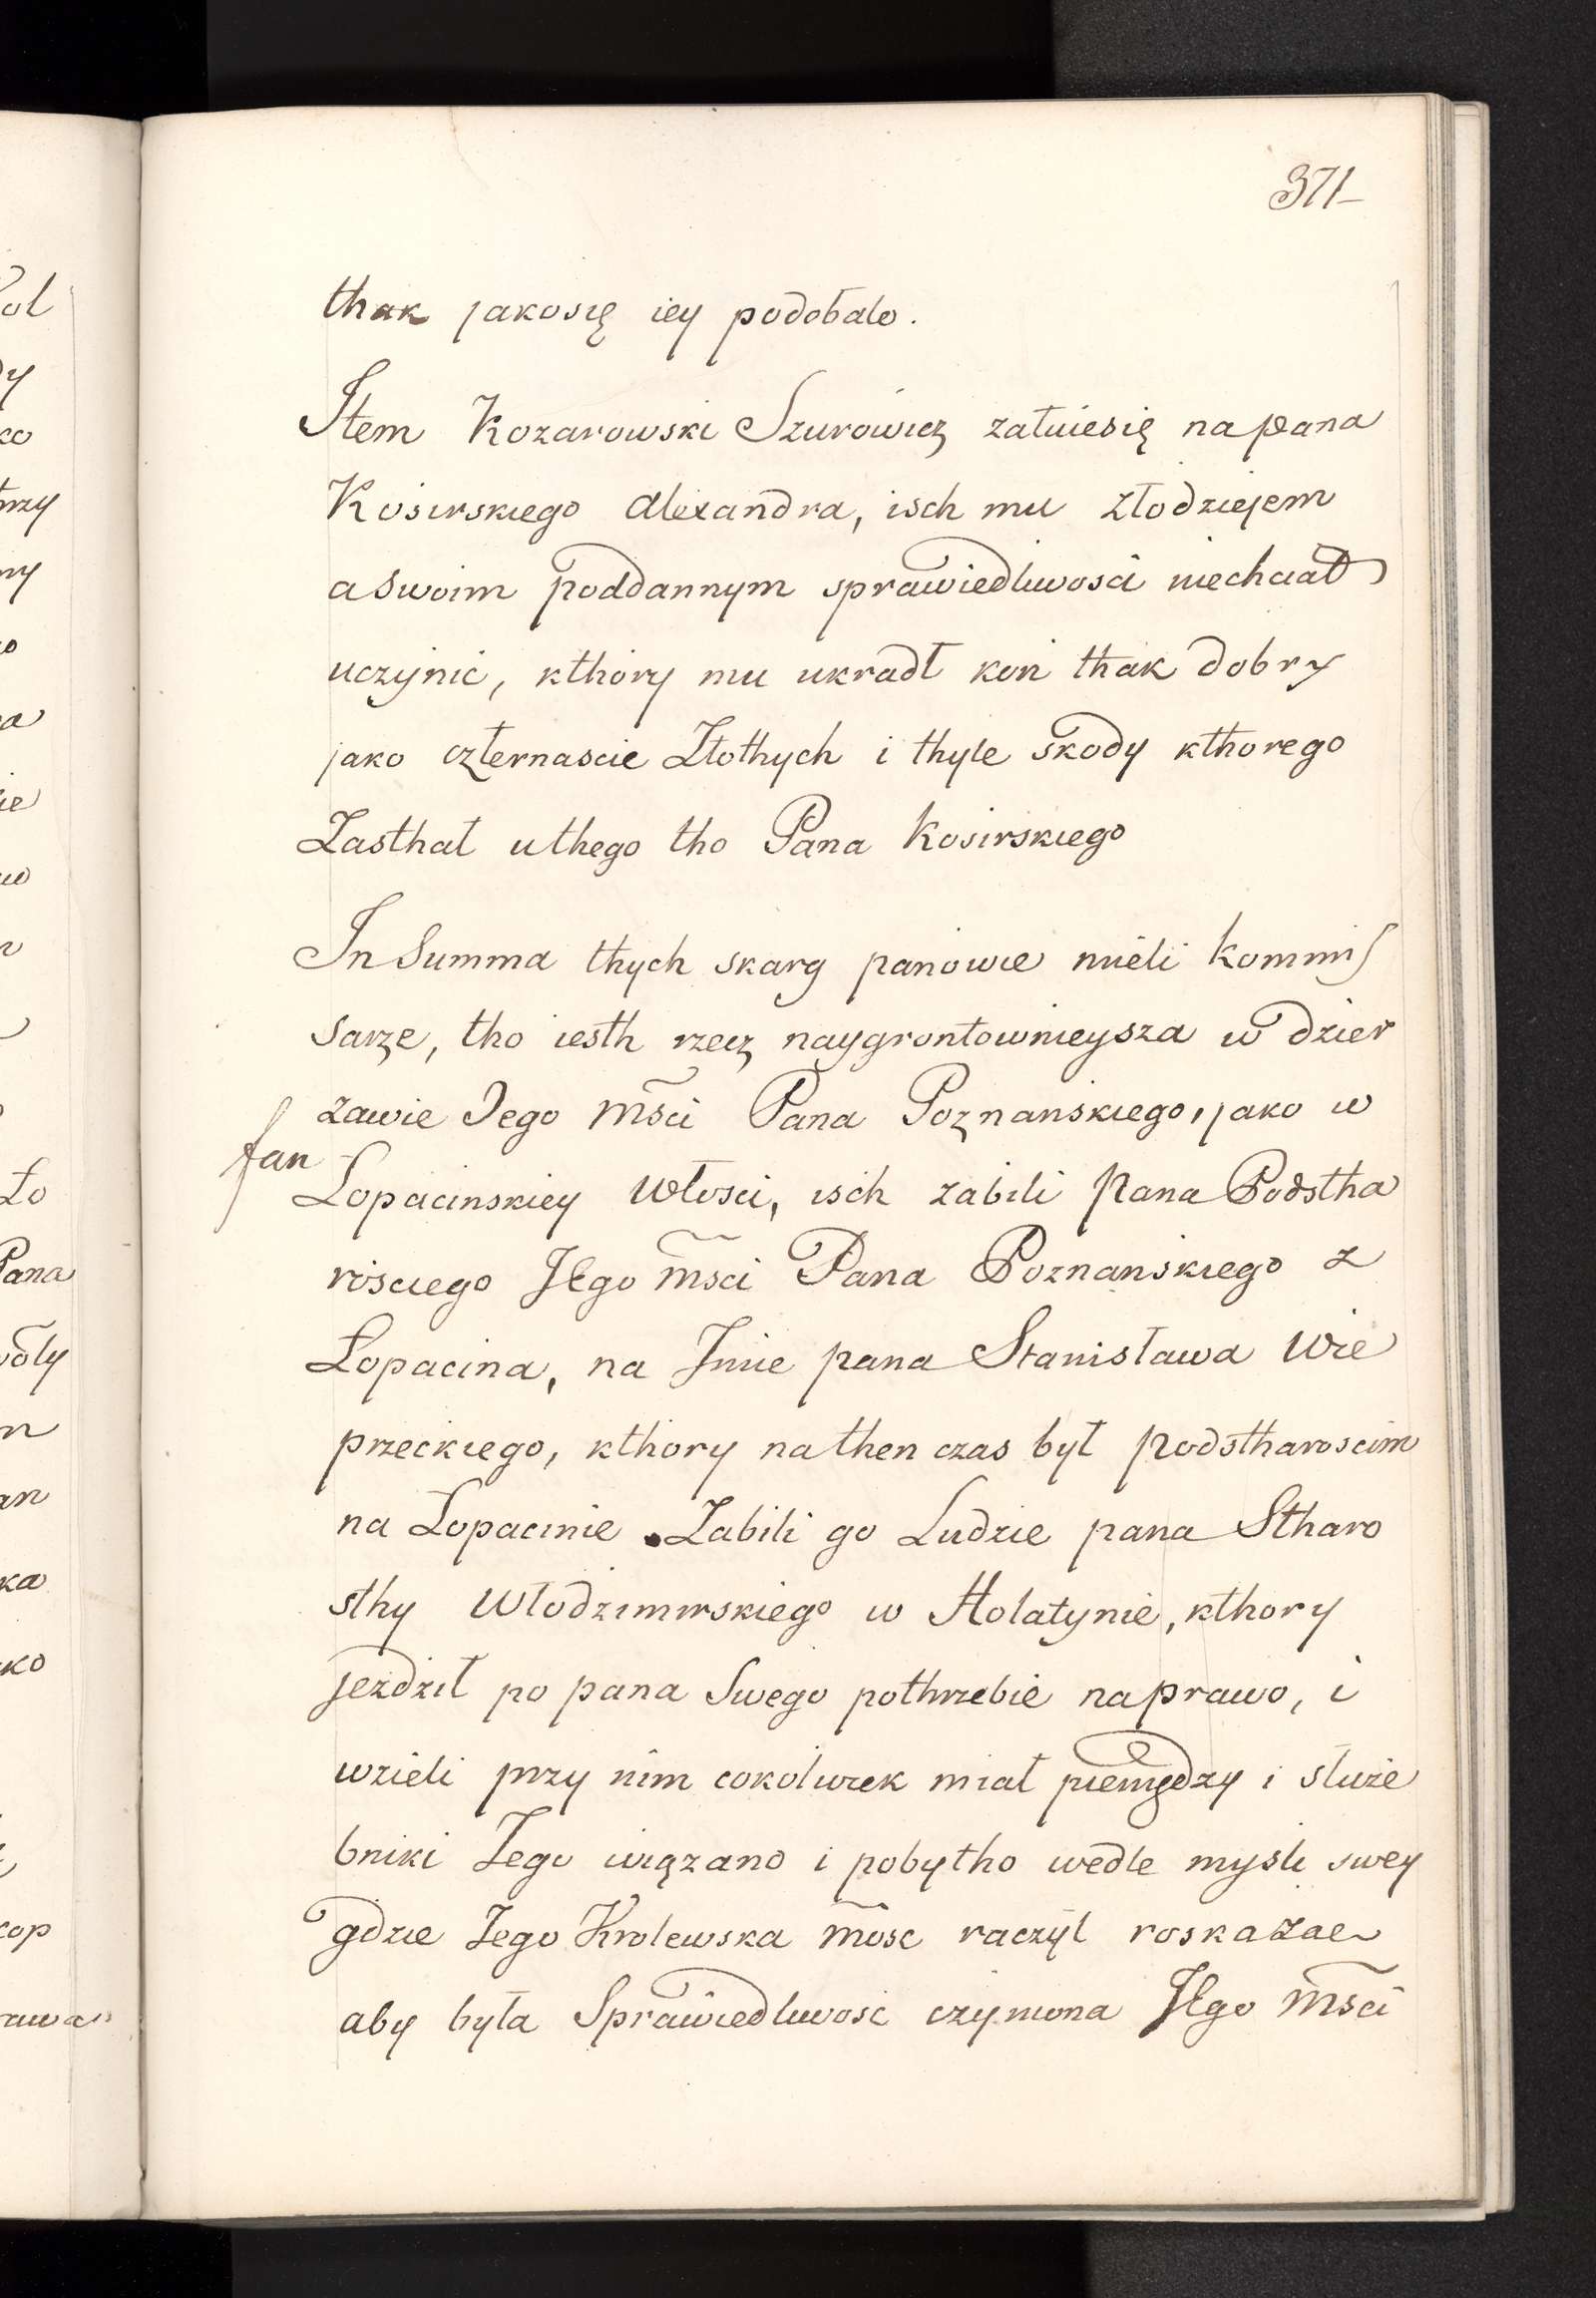 371
thak jakosię iey podobalo.
Item Kozarowski Szurowicz załuiesię napana
Kosirskiego Alexandra, isch mu złodziejem
aswoim poddannym sprawiedliwosci niechciał
uczynić, kthory mu ukradł koń thak dobry
jako czternascie Złothych i thyle skody kthorego
Zasthał uthego tho Pana Kosirskiego
In Summa thych skarg panowie mieli kommis
sarze, tho iesth rzecz naygrontownieysza w dzier
zawie Jego Msci Pana Poznanskiego, jako w
Łopacinskiey włosci, isch zabili pana Podstha
rosciego Jego Msci Pana Poznanskiego z
Łopacina, na Jmie pana Stanisława Wie
przeckiego, kthory nathen czas był podstharoscim
na Łopacinie. Zabili go Ludzie pana Stharo
sthy Włodzimirskiego w Holatynie, kthory
jezdził po pana Swego pothrzebie naprawo, i
wzieli przy nim cokolwiek miał pieniędzy i słuze
bniki Jego wiązano i pobytho wedle mysli swey
gdzie Jego Krolewska Mosc raczył roskazac
aby była Sprawiedliwosc czyniona Jego Msci